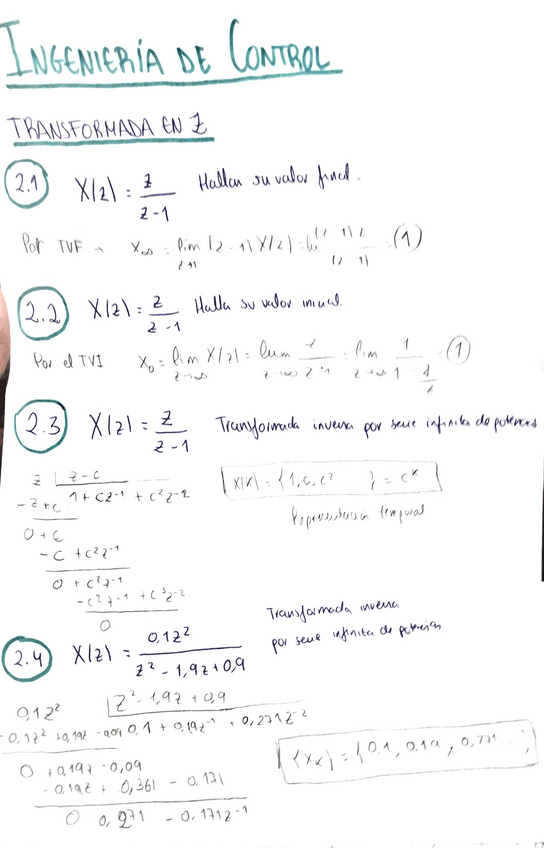 INGENIERÍA DE CONTROL
TRANSFORMADA EN Z
2.1 X(z) = z / z-1 Hallar su valor final.
Por TVF → X∞ = lim z→1 (z-1) X(z) = (1)
2.2 X(z) = z / z-1 Halla su valor inicial.
Por el TVI X0 = lim z→∞ X(z) = lim z→∞ = lim z→∞ 1 / 1 - 1/z = (1)
2.3 X(z) = z / z-1 Transformada inversa por serie infinita de potencias
z | z-c
-z+c 1+cz-1 + c²z-2
X(k) = {1, c, c² } = cᵏ
0+c
Representación temporal
-c + c²z-1
0 + c²z-1
-c²z-1 + c³z-2
0
Transformada inversa
por serie infinita de potencias
2.4 X(z) = 0,1z² / z² - 1,9z + 0,9
0,1z² | z² - 1,9z + 0,9
-0,1z² +0,19z -0,09 0,1 + 0,19z-1 + 0,271z-2
{Xk} = {0.1, 0.19,
0 +0,19z -0,09
-0,19z + 0,361 - 0,171
0 0,271 - 0,171z-1